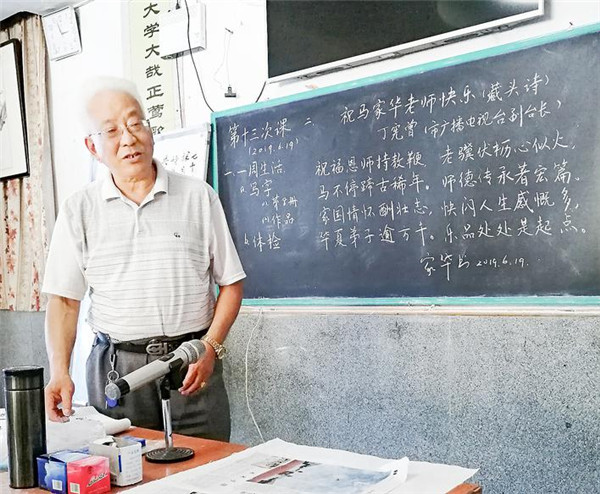 大学大哉正
第十三次课
(2019.6.19)
一.一周生活
a.马字
作品
b.体检
二 祝马家华老师快乐(藏头诗)
(市广播电视台副台长)
祝福恩师持教鞭 老骥伏枥心似火,
马不停蹄古稀年。师德传承著宏篇。
家国情怀酬壮志,快闪人生感慨多,
华夏弟子逾万千。乐品处处是起点。
家华书 2019.6.19.